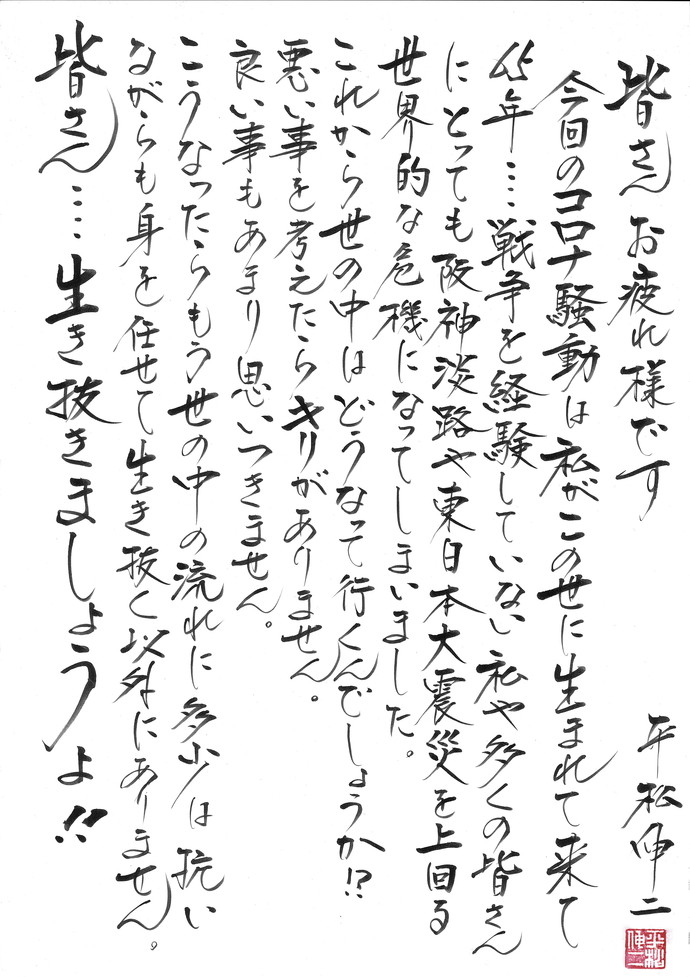 皆さんお疲れ様です
平松伸二
平松伸二
今回のコロナ騒動は私がこの世に生まれて来て
65年…戦争を経験していない私や多くの皆さん
にとっても阪神淡路や東日本大震災を上回る
世界的な危機になってしまいました。
これから世の中はどうなって行くんでしょうか!?
悪い事を考えたらキリがありません。
良い事もあまり思いつきません。
こうなったらもう世の中の流れに多少は抗い
ながらも身を任せて生き抜く以外にありません。
皆さん…生き抜きましょうよ!!